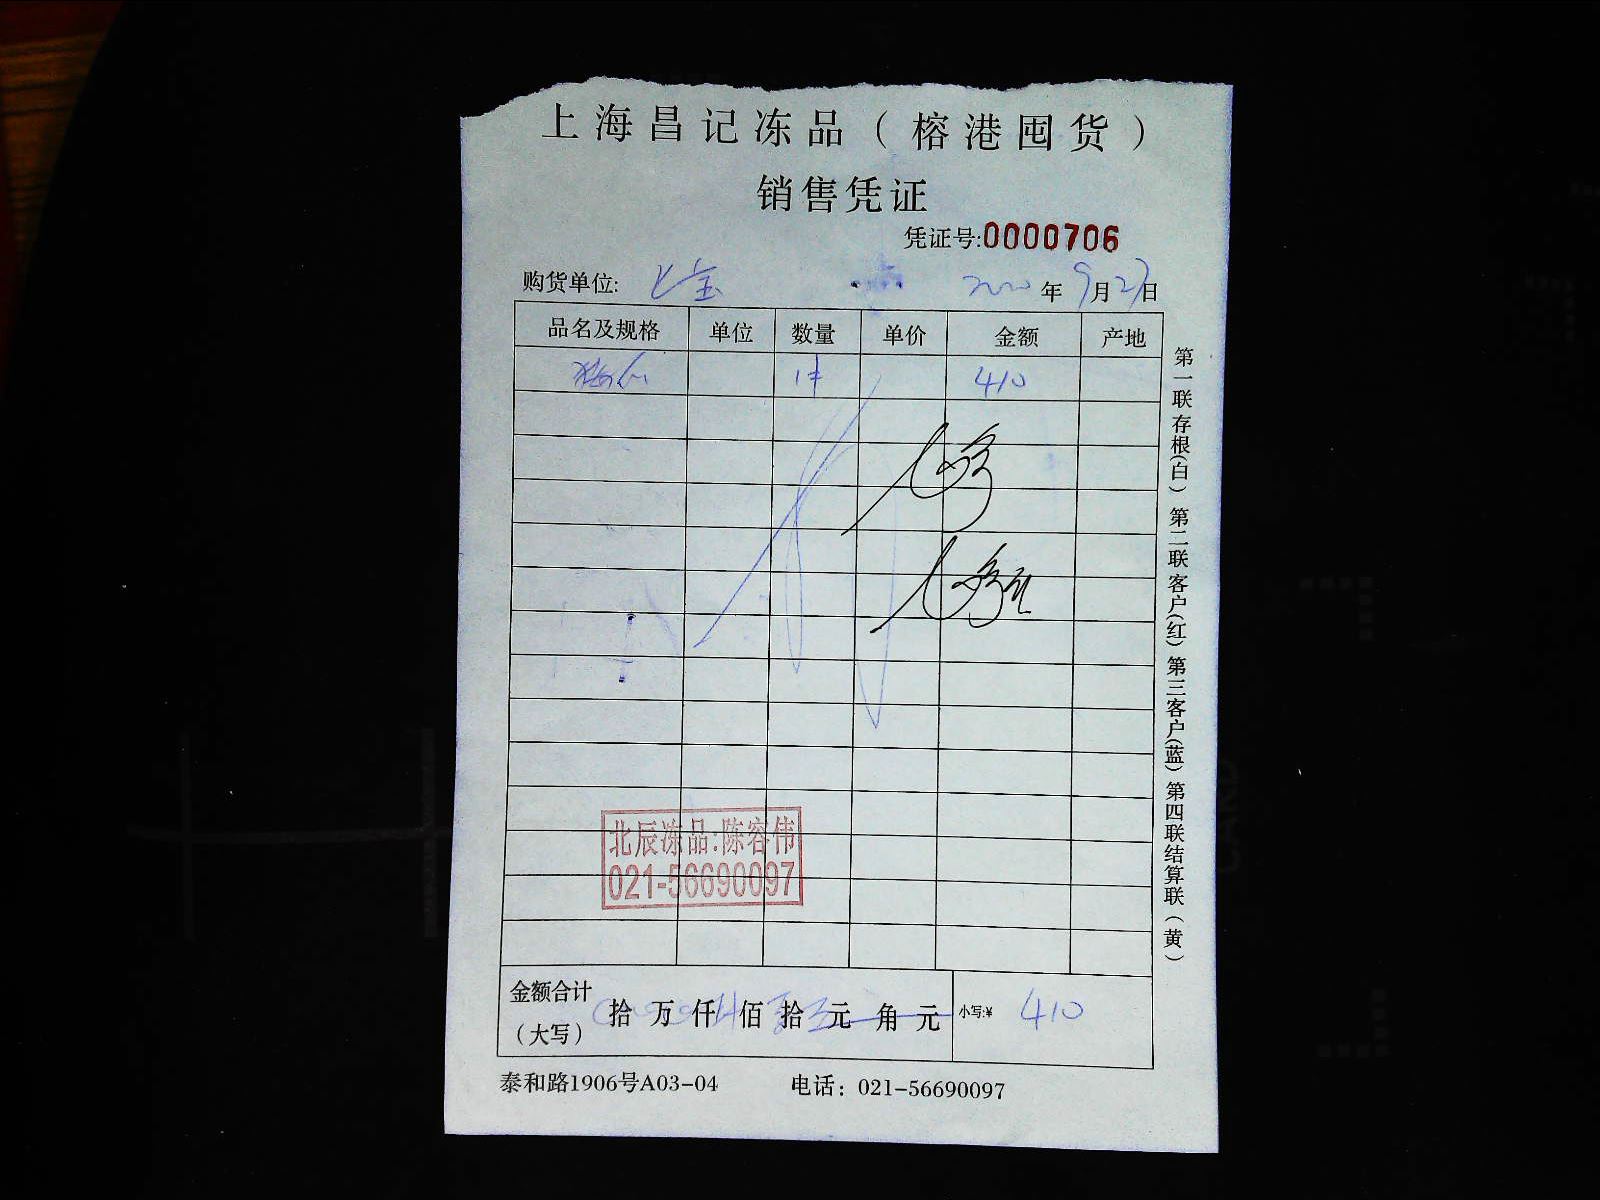 上海昌记冻品（榕港囤货）
销售凭证
凭证号:0000706
购货单位: 年9月27日
品名及规格 单位 数量 单价 金额 产地
1件 410
北辰冻品:陈容伟
021-56690097
金额合计（大写） 拾 万 仟 佰 拾 元 角 元 小写:¥ 410
泰和路1906号A03-04 电话：021-56690097
第一联存根(白) 第二联客户(红) 第三客户(蓝) 第四联结算联(黄)